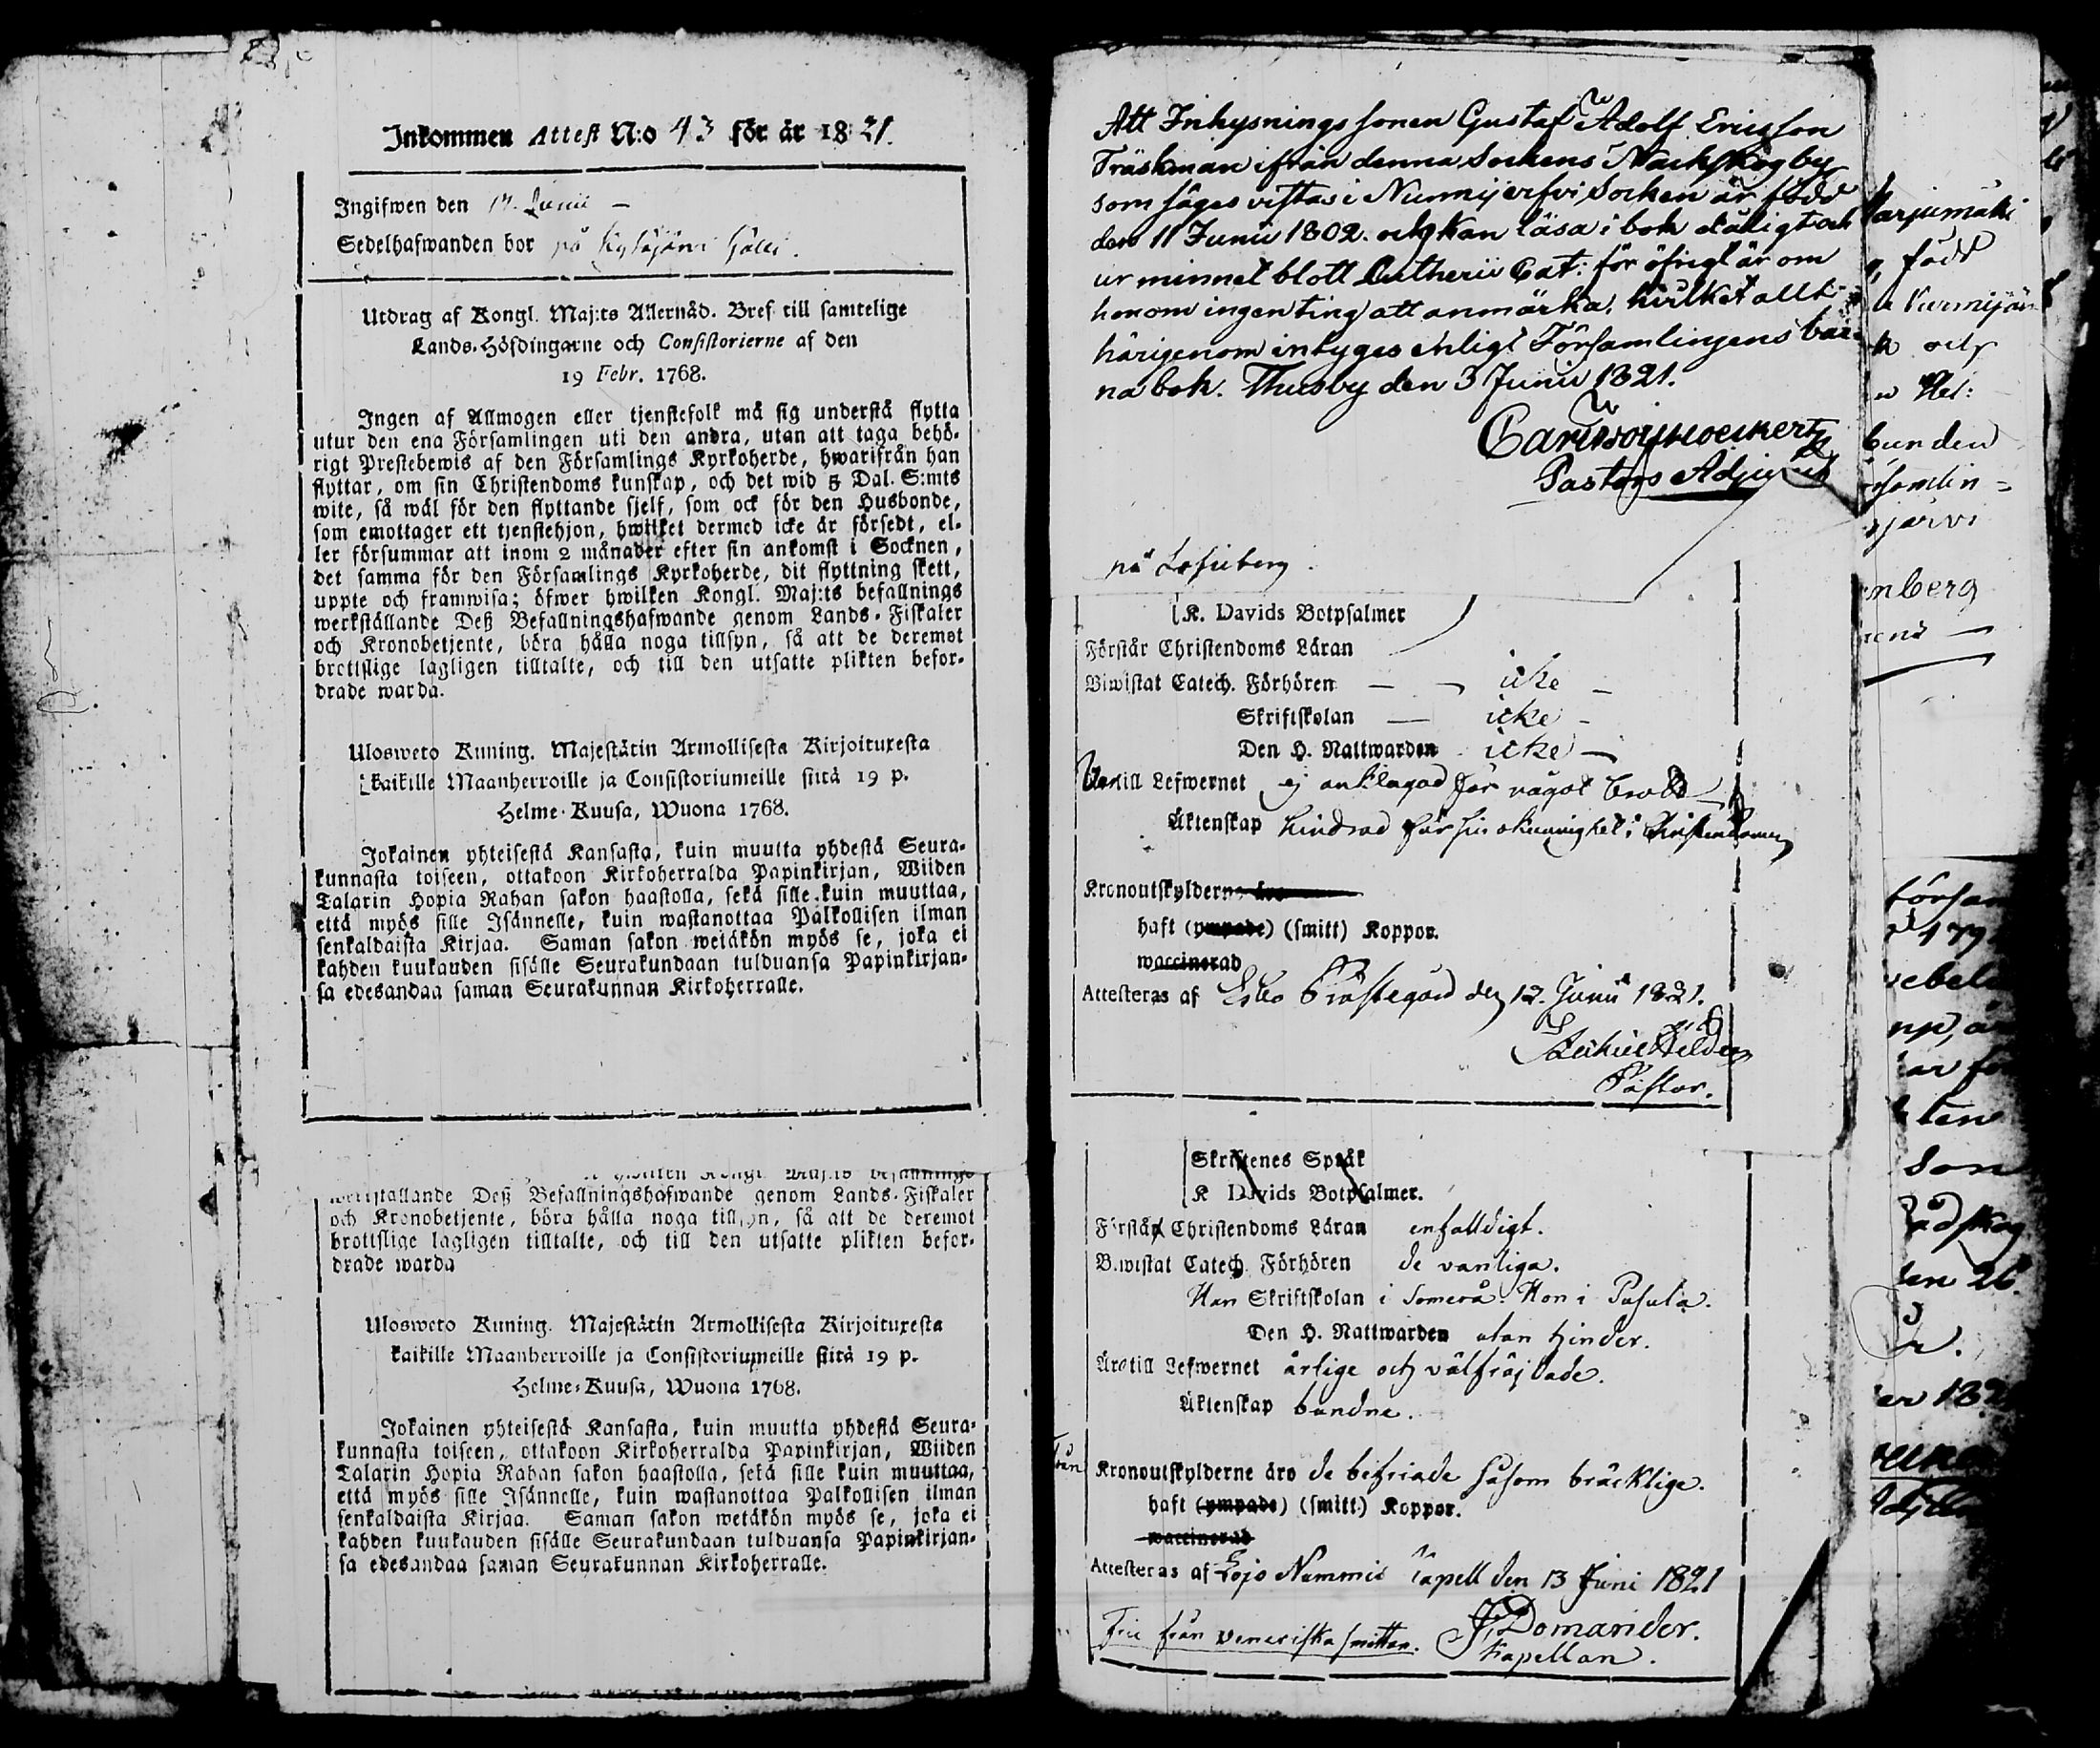 Inkommen Attest N:o 43 för år 1821.
Ingifwen den 17. Junii –
Sedelhafwanden bor på
Utdrag af Kongl. Maj:ts Allernåd. Bref till samtelige
Lands-Höfdingarne och Consistorierne af den
19 Febr. 1768.
Ingen af Allmogen eller tjenstefolk må sig understå flytta
utur den ena Församlingen uti den andra, utan att taga behö-
rigt Prestebewis af den Församlings Kyrkoherde, hwarifrån han
flyttar, om sin Christendoms kunskap, och det wid 5 Dal. S:mts
wite, så wäl för den flyttande sjelf, som ock för den Husbonde,
som emottager ett tjenstehjon, hwilket dermed icke är försedt, el-
ler försummar att inom 2 månader efter sin ankomst i Socknen,
det samma för den Församlings Kyrkoherde, dit flyttning skett,
uppte och framwisa; öfwer hwilken Kongl. Maj:ts befallnings
werkställande Deß Befallningshafwande genom Lands-Fiskaler
och Kronobetjente, böra hålla noga tillsyn, så att de deremot
brottslige lagligen tilltalte, och till den utsatte plikten befor-
drade warda.
Ulosweto Kuning. Majestätin Armollisesta Kirjoituxesta
kaikille Maanherroille ja Consistoriumeille siitä 19 p.
Helme-Kuusa, Wuona 1768.
Jokainen yhteisestä Kansasta, kuin muutta yhdestä Seura-
kunnasta toiseen, ottakoon Kirkoherralda Papinkirjan, Wiiden
Talarin Hopia Rahan sakon haastolla, sekä sille kuin muuttaa,
että myös sille Isännelle, kuin wastanottaa Palkollisen ilman
senkaldaista Kirjaa. Saman sakon wetäkön myös se, joka ei
kahden kuukauden sisälle Seurakundaan tulduansa Papinkirjan-
sa edesandaa saman Seurakunnan Kirkoherralle.
werkställande Deß Befallningshafwande genom Lands-Fiskaler
och Kronobetjente, böra hålla noga tillsyn, så att de deremot
brottslige lagligen tilltalte, och till den utsatte plikten befor-
drade warda
Ulosweto Kuning. Majestätin Armollisesta Kirjoituxesta
kaikille Maanherroille ja Consistoriumeille siitä 19 p.
Helme-Kuusa, Wuona 1768.
Jokainen yhteisestä Kansasta, kuin muutta yhdestä Seura-
kunnasta toiseen, ottakoon Kirkoherralda Papinkirjan, Wiiden
Talarin Hopia Rahan sakon haastolla, sekä sille kuin muuttaa,
että myös sille Isännelle, kuin wastanottaa Palkollisen ilman
senkaldaista Kirjaa. Saman sakon wetäkön myös se, joka ei
kahden kuukauden sisälle Seurakundaan tulduansa Papinkirjan-
sa edesandaa saman Seurakunnan Kirkoherralle.
Att Inhysnings sonen Gustaf Adolf Ericsson
Träskman ifrån denna Sockens Nackskog by
som säges vistas i Nurmijerfvi Socken är född
den 11 Junii 1802. och kan läsa i bok dåligt och
ur minnet blott Lutherii Cat: för öfrigt är om
honom ingenting att anmärka, hvilket allt
härigenom intyges enligt Församlingens bar-
na bok. Thusby den 3 Junii 1821.
Pastors Adjunct
på
K. Davids Botpsalmer
Förstår Christendoms Läran
Biwistat Catech. Förhören – – icke –
Skriftskolan – icke –
Den H. Nattwarden icke –
Är till Lefwernet ej anklagad för något brott
Äktenskap hindrad för sin okunnighet i Christendomen
Kronoutskylderne äro
haft (ympade) (smitt) Koppor.
waccinerad
Attesteras af Esbo Prästegård den 12. Junii 1821.
Pastor.
Skriftenes Språk
K Davids Botpsalmer.
Förstår Christendoms Läran enfalldigt.
Biwistat Catech. Förhören de vanliga.
Han Skriftskolan i Somerå. Hon i Pusula.
Den H. Nattwarden utan hinder.
Äro till Lefwernet ärlige och välfräjdade.
Äktenskap bundne.
Kronoutskylderne äro de befriade såsom bräcklige.
haft (ympade) (smitt) Koppor.
waccinerad
Attesteras af Lojo Nummis Capell den 13 Juni 1821
Frie från Veneriska smittan. Domander.
Kapellan.
född
och
bunden